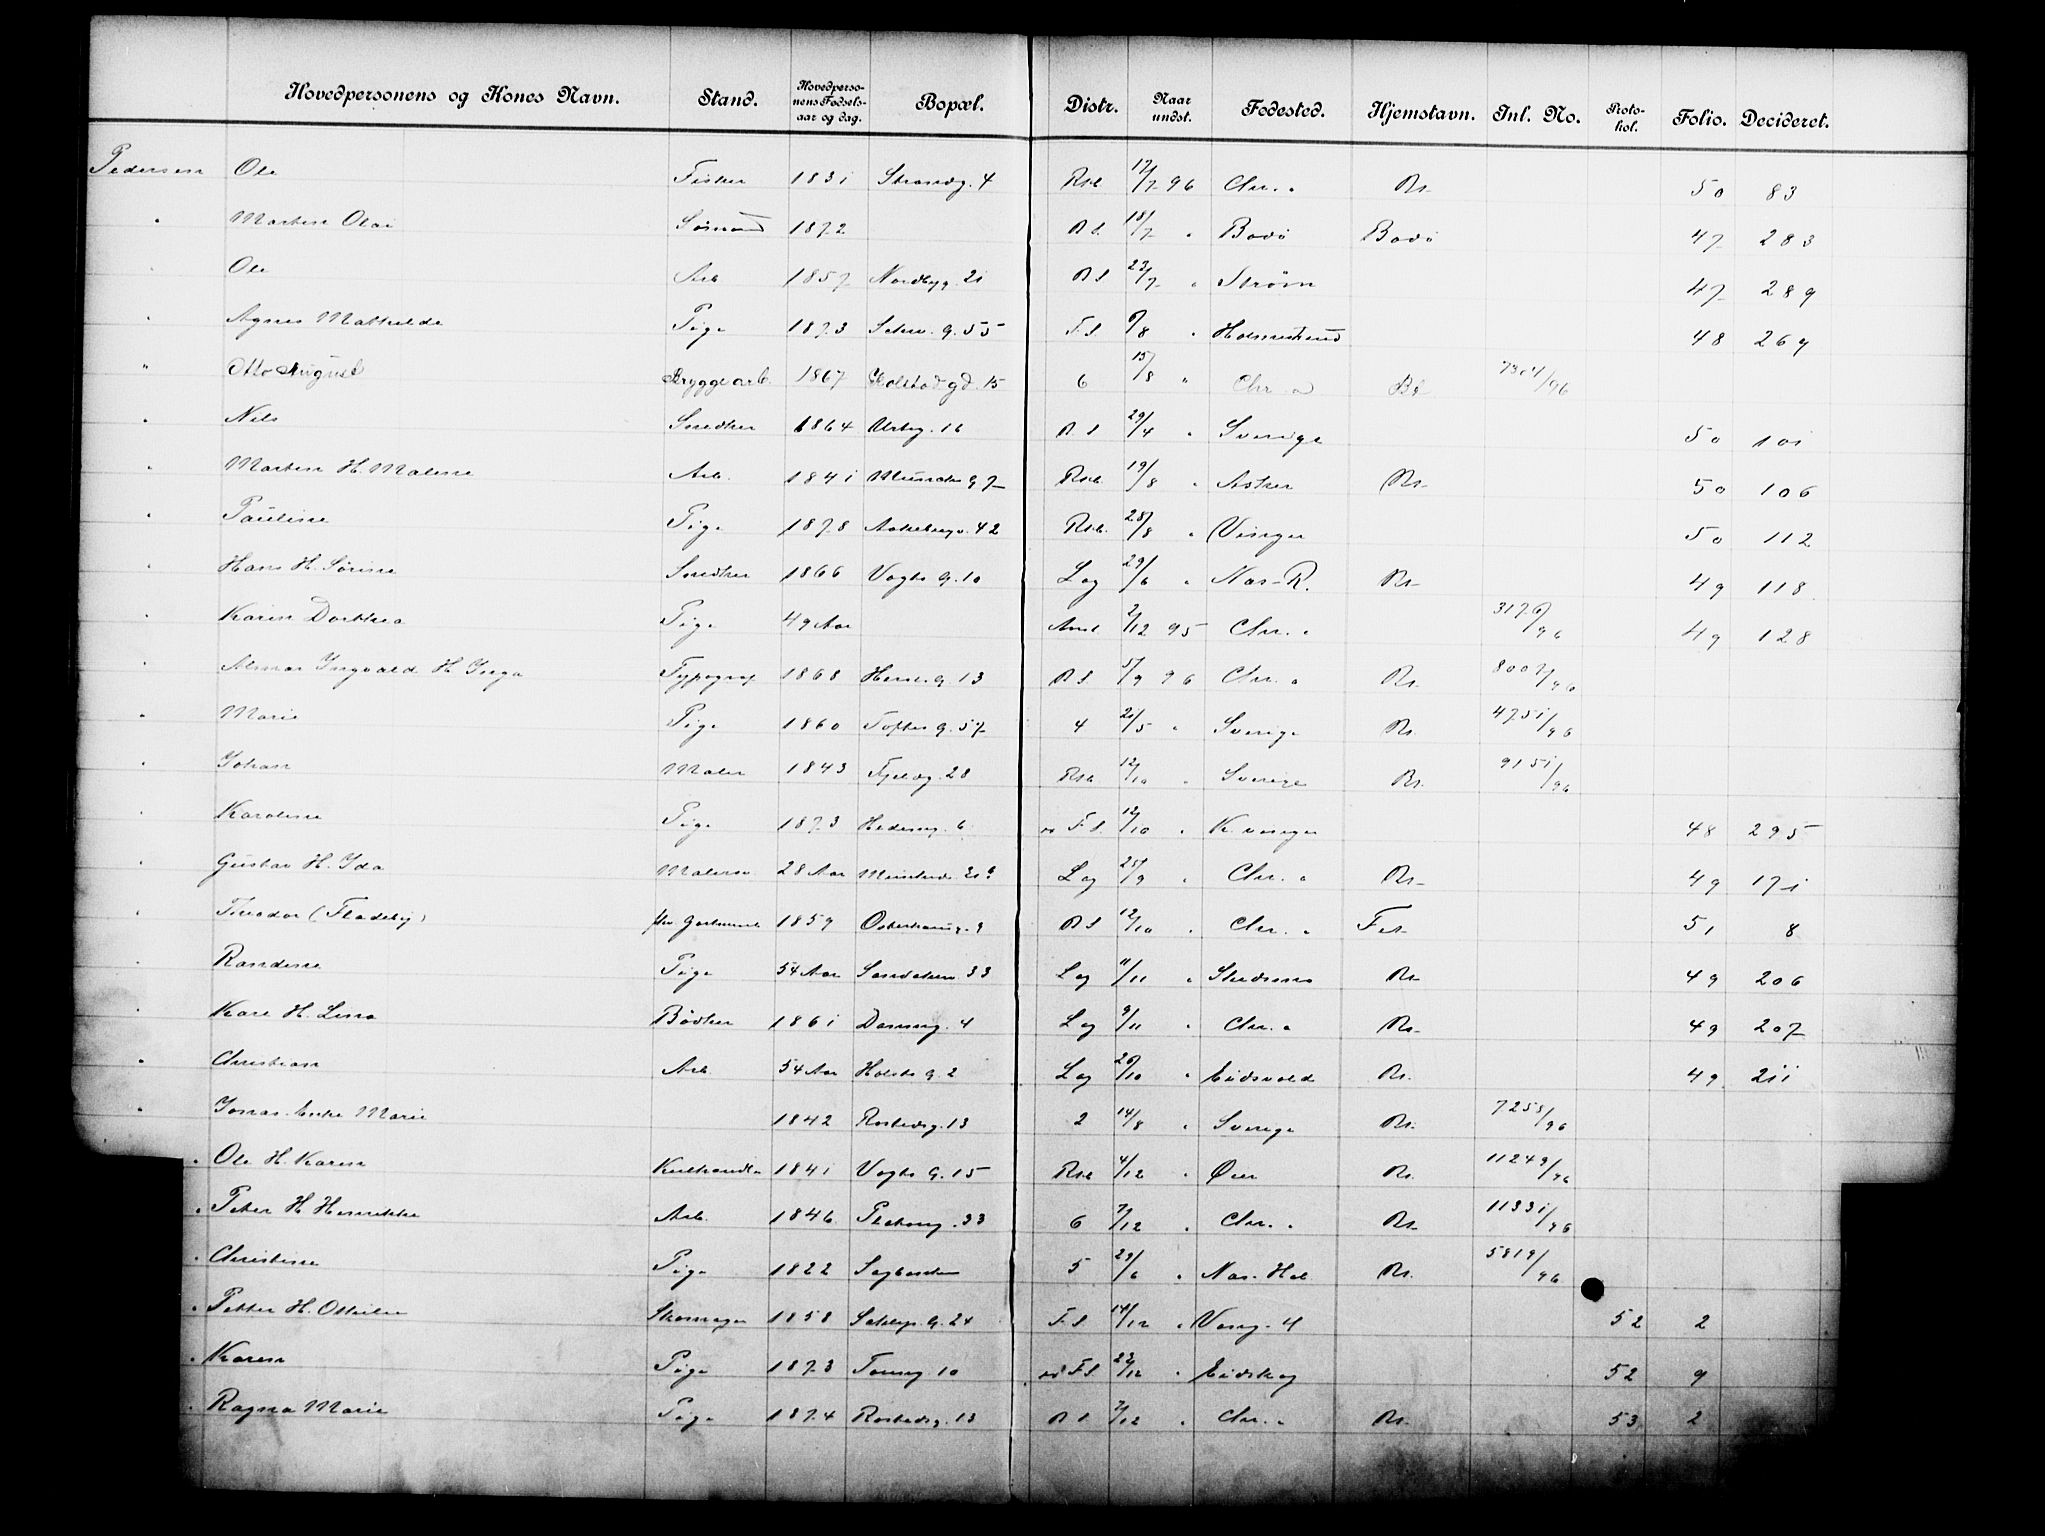 Hovedpersonens og Kones Navn. Stand. Hovedpersonens Fødselsaar og dag. Bopæl. Distr. Naar undst. Fødested. Hjemstavn. Inl. No. Protokol. Folio. Decideret.
Pedersen Ole Fisker 1831 Strandg. 4 Rst. 17/7 96 Chr. a Rs. 50 83
" Martin Olai Sømand 1872 R S. 18/7 " Bodø Bodø 47 283
" Ole Arb 1857 Nordbyg. 21 R S 23/7 " Strøm 47 289
" Agnes Mathilde Pige 1873 Schw. g. 55 F. S. 6/8 " Holmestrand 48 269
" Otto August Bryggearb. 1867 gd. 15 6 15/8 " Chr. a Rs 7304/96
" Nils Snedker 1864 Urteg. 16 R S 29/4 " Sverige 50 101
" Martin H. Malene Arb. 1841 Munch. g 7 Rst. 19/8 " Asker Rs. 50 106
" Pauline Pige 1878 Aakebergv. 42 Rst. 28/8 " Vinger 50 112
" Hans H. Sørine Snedker 1866 Vogts g. 10 Lag 29/6 " Næs-R. Rs. 49 118
" Karen Dorthea Pige 49 Aar 2/12 95 Chr. a 3176/96 49 128
" Almar Ingvald H. Inga Typograf 1868 Hersl. g. 13 R S. 5/9 96 Chr. a Rs. 8007/96
" Marie Pige 1860 Toftes g. 57 4 21/5 " Sverige Rs. 4751/96
" Johan Maler 1843 Fjeldg. 28 Rst. 12/10 " Sverige Rs. 9151/96
" Karoline Pige 1873 Hedemg. 6 v F. S. 12/10 " K. vinger 48 295
" Gustav H. Ida Malersv. 28 Aar Lag 25/9 " Chr. a Rs. 49 171
" Theodor (Fladeby) 1859 Østerhausg. 9 R S 12/10 " Chr. a Fet 51 8
" Randine Pige 54 Aar Sandakerv 33 Lag 11/11 " Skedsmo Rs. 49 206
" Kare H. Lina Bødker 1861 Dammg. 4 Lag 9/11 " Chr. a Rs. 49 207
" Christian Arb. 54 Aar Holsts g. 2 Lag 26/10 " Eidsvold Rs. 49 211
" Jonas Enke Marie 1842 Rostedsg. 13 2 14/8 " Sverige Rs. 7258/96
" Ole H. Karen Kulhandl. 1841 Vogts g. 15 Rst 4/12 " Øier Rs. 11249/96
" Peter H Henrikke Arb. 1846 33 6 7/12 " Chr. a Rs. 11331/96
" Christine Pige 1822 5 29/6 " Næs. Hed Rs. 5819/96
" Petter H. Ottilie Skomager 1858 g. 24 F. S 14/12 " Vang. H 52 2
" Karen Pige 1873 10 v F S 23/12 " Eidskog 52 9
" Ragna Marie Pige 1874 Rostedsg. 13 R S. 7/12 " Chr. a Rs. 53 2